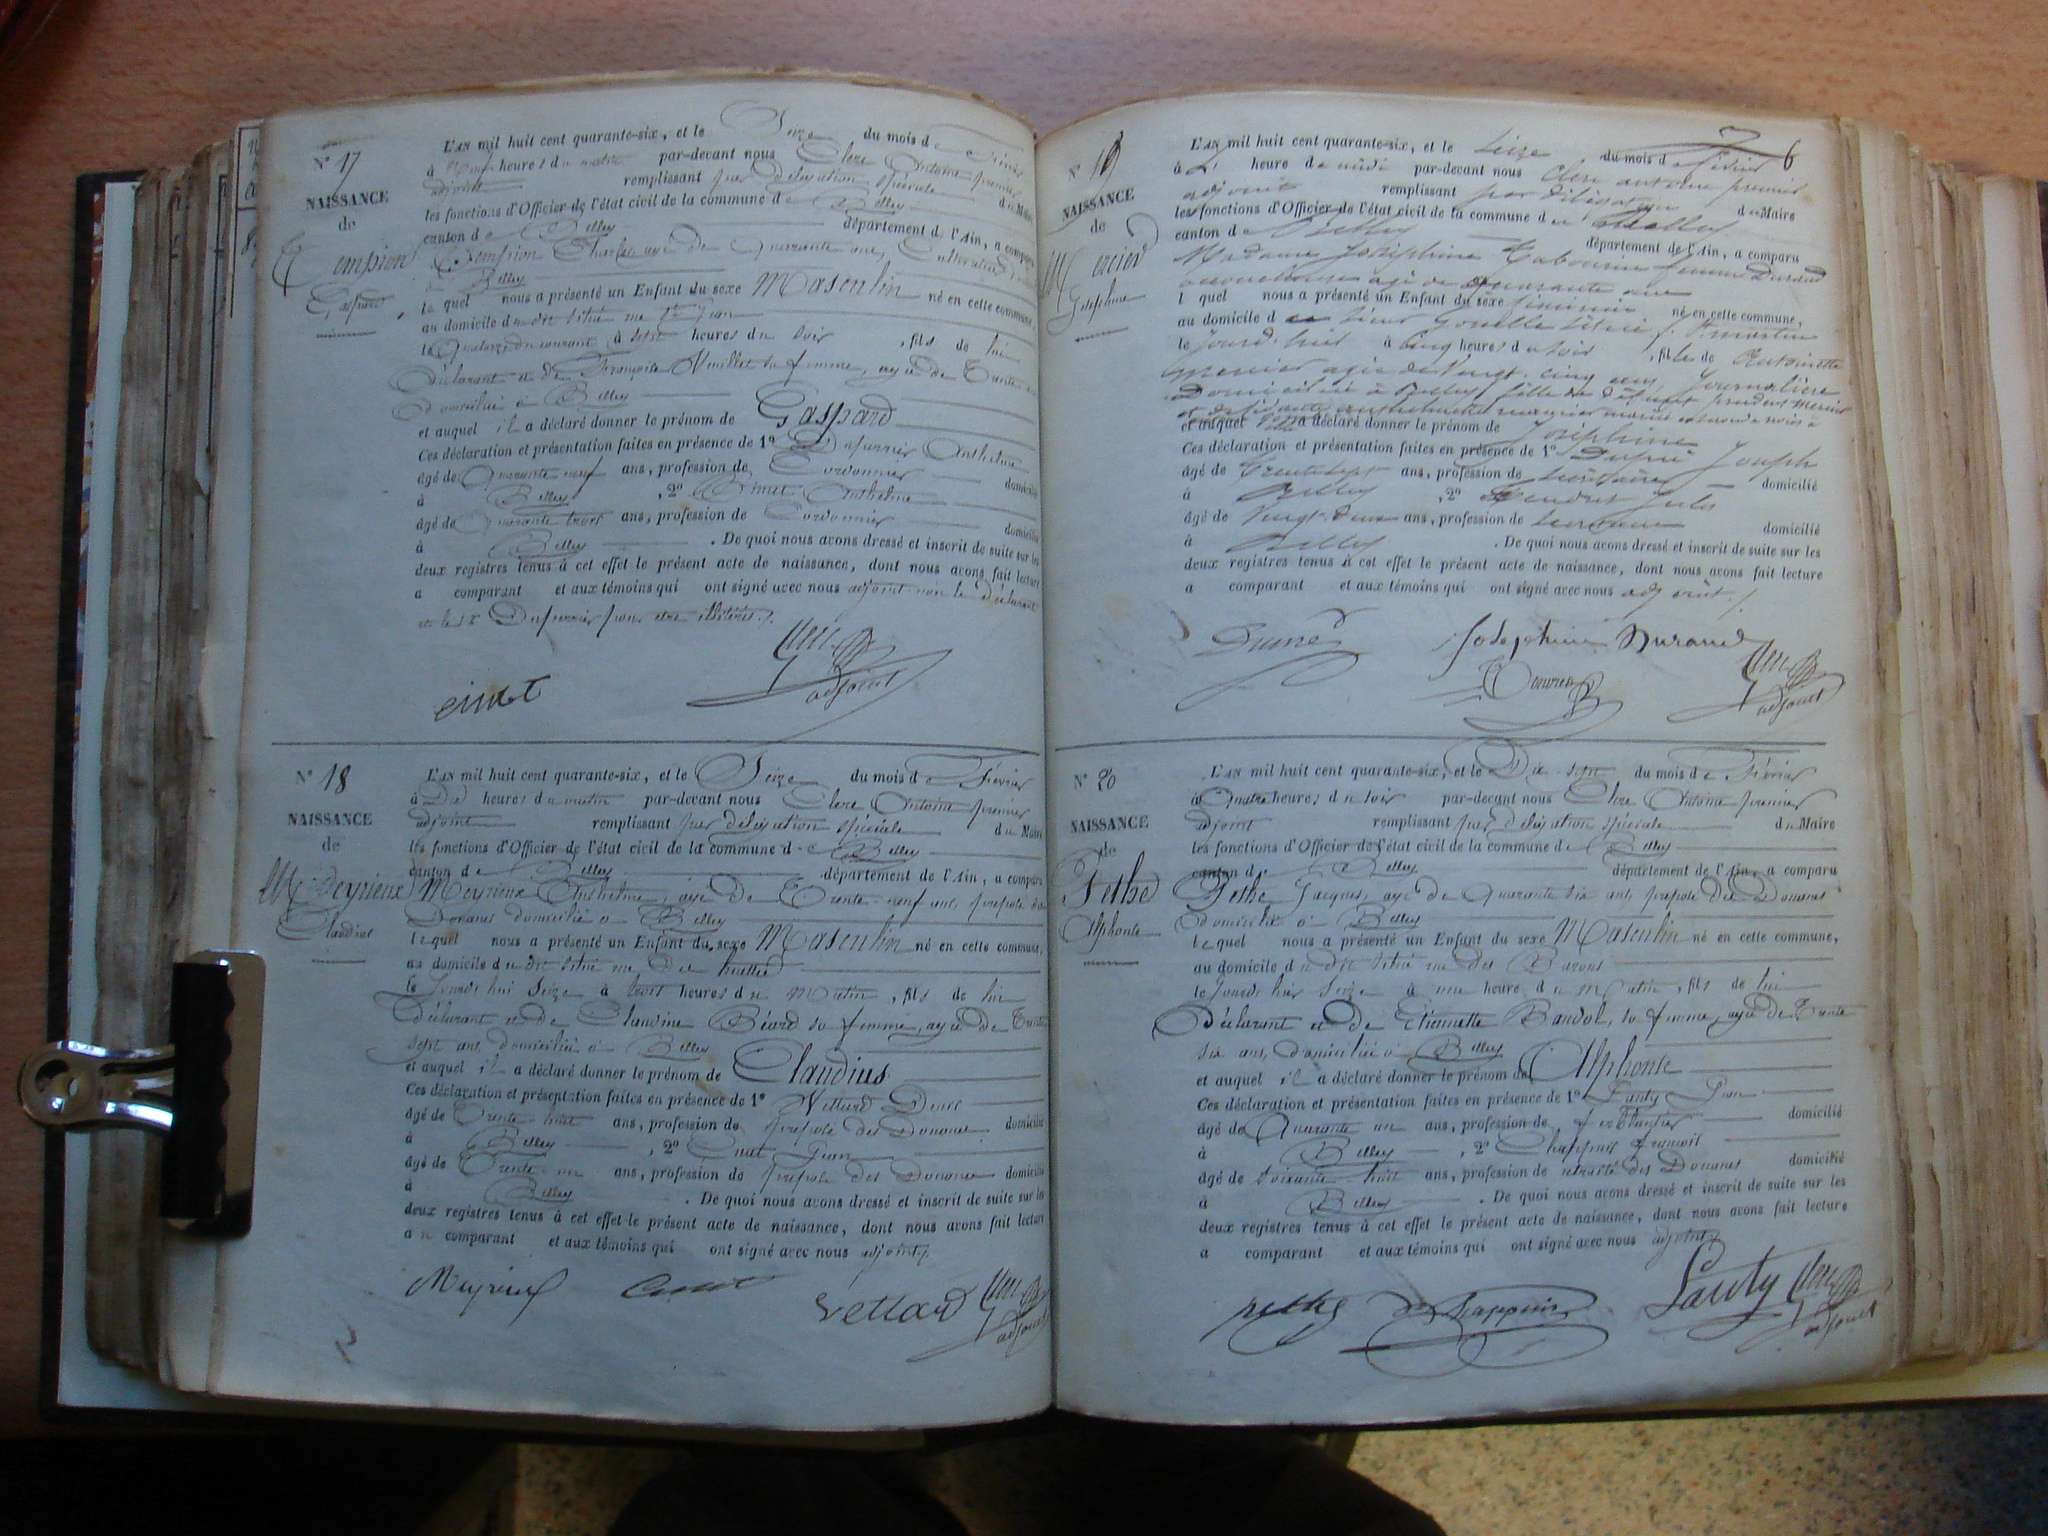 N° 17
NAISSANCE
de
Tempion
Gaspard
L'AN mil huit cent quarante-six, et le Seize du mois de Février
à heures du matin par-devant nous Clerc Antoine premier
adjoint remplissant par délégation spéciale du Maire
les fonctions d'Officier de l'état civil de la commune de Belley
canton de Belley département de l'Ain, a comparu
Tempion Charles, agé de Quarante ans, Cultivateur
Belley
lequel nous a présenté un Enfant du sexe Masculin né en cette commune,
au domicile du dit situé rue St Jean
le Quatorze du courant à sept heures du soir, fils de lui
Déclarant et de Françoise Vuillet sa femme, agée de Trente
domicilié à Belley
et auquel il a déclaré donner le prénom de Gaspard
Ces déclaration et présentation faites en présence de 1° Dufurrier Anthelme
âgé de Quarante neuf ans, profession de Cordonnier domicilié
à Belley, 2° Anthelme
âgé de Quarante trois ans, profession de Cordonnier domicilié
à Belley. De quoi nous avons dressé et inscrit de suite sur les
deux registres tenus à cet effet le présent acte de naissance, dont nous avons fait lecture
a comparant et aux témoins qui ont signé avec nous adjoint non le Déclarant
et le Dufurrier pour être illitérés
adjoint
N° 18
NAISSANCE
de
Meyrieux
Claudius
L'AN mil huit cent quarante-six, et le Seize du mois de Février
à Dix heures du matin par-devant nous Clerc Antoine premier
adjoint remplissant par délégation spéciale du Maire
les fonctions d'Officier de l'état civil de la commune de Belley
canton de Belley département de l'Ain, a comparu
Meyrieux Anthelme, agé de Trente-neuf ans, préposé des
Douanes domicilié à Belley
lequel nous a présenté un Enfant du sexe Masculin né en cette commune,
au domicile du dit situé rue des
le Jourd'hui Seize à trois heures du Matin, fils de lui
Déclarant et de Claudine Béard sa femme, agée de Trente
sept ans, domicilié à Belley
et auquel il a déclaré donner le prénom de Claudius
Ces déclaration et présentation faites en présence de 1° Vettard Denis
âgé de Trente huit ans, profession de préposé des Douanes domicilié
à Belley, 2° Jean
âgé de Trente un ans, profession de préposé des Douanes domicilié
à Belley. De quoi nous avons dressé et inscrit de suite sur les
deux registres tenus à cet effet le présent acte de naissance, dont nous avons fait lecture
au comparant et aux témoins qui ont signé avec nous adjoint
Meyrieux Vettard adjoint
6
N° 19
NAISSANCE
de
Mercier
Joséphine
L'AN mil huit cent quarante-six, et le Seize du mois de février
à heure de midi par-devant nous Clerc antoine premier
adjoint remplissant par délégation du Maire
les fonctions d'Officier de l'état civil de la commune de Belley
canton de Belley département de l'Ain, a comparu
Madame Joséphine Tabourin femme Durand
accoucheuse agée de quarante ans
lequel nous a présenté un Enfant du sexe féminin né en cette commune,
au domicile du sieur Gonelle situé St martin
le Jourd'hui à Cinq heures du soir, fille de Antoinette
Mercier agée de vingt-cinq ans Journalière
Domiciliée à Belley fille de défunt prudent Mercier
et auquel elle a déclaré donner le prénom de Joséphine
Ces déclaration et présentation faites en présence de 1° Joseph
âgé de trente sept ans, profession de secrétaire domicilié
à Belley, 2° Jules
âgé de Vingt-deux ans, profession de domicilié
à Belley. De quoi nous avons dressé et inscrit de suite sur les
deux registres tenus à cet effet le présent acte de naissance, dont nous avons fait lecture
a comparant et aux témoins qui ont signé avec nous adjoint
Josephine Durand
adjoint
N° 20
NAISSANCE
de
Pethe
Alphonse
L'AN mil huit cent quarante-six, et le Dix-sept du mois de Février
à Quatre heures du soir par-devant nous Clerc Antoine premier
adjoint remplissant par délégation spéciale du Maire
les fonctions d'Officier de l'état civil de la commune de Belley
canton de Belley département de l'Ain, a comparu
Pethe Jacques, agé de Quarante six ans, préposé des Douanes
domicilié à Belley
lequel nous a présenté un Enfant du sexe Masculin né en cette commune,
au domicile du dit situé rue des Barons
le Jourd'hui Seize à une heure du Matin, fils de lui
Déclarant et de Etiennette Bandol, sa femme, agée de Trente
six ans, domiciliée à Belley
et auquel il a déclaré donner le prénom de Alphonse
Ces déclaration et présentation faites en présence de 1° Lanty Jean
âgé de Quarante un ans, profession de ferblantier domicilié
à Belley, 2° Chappuis françois
âgé de soixante-huit ans, profession de retraité des Douanes domicilié
à Belley. De quoi nous avons dressé et inscrit de suite sur les
deux registres tenus à cet effet le présent acte de naissance, dont nous avons fait lecture
a comparant et aux témoins qui ont signé avec nous adjoint
pethe Chappuis Lanty adjoint